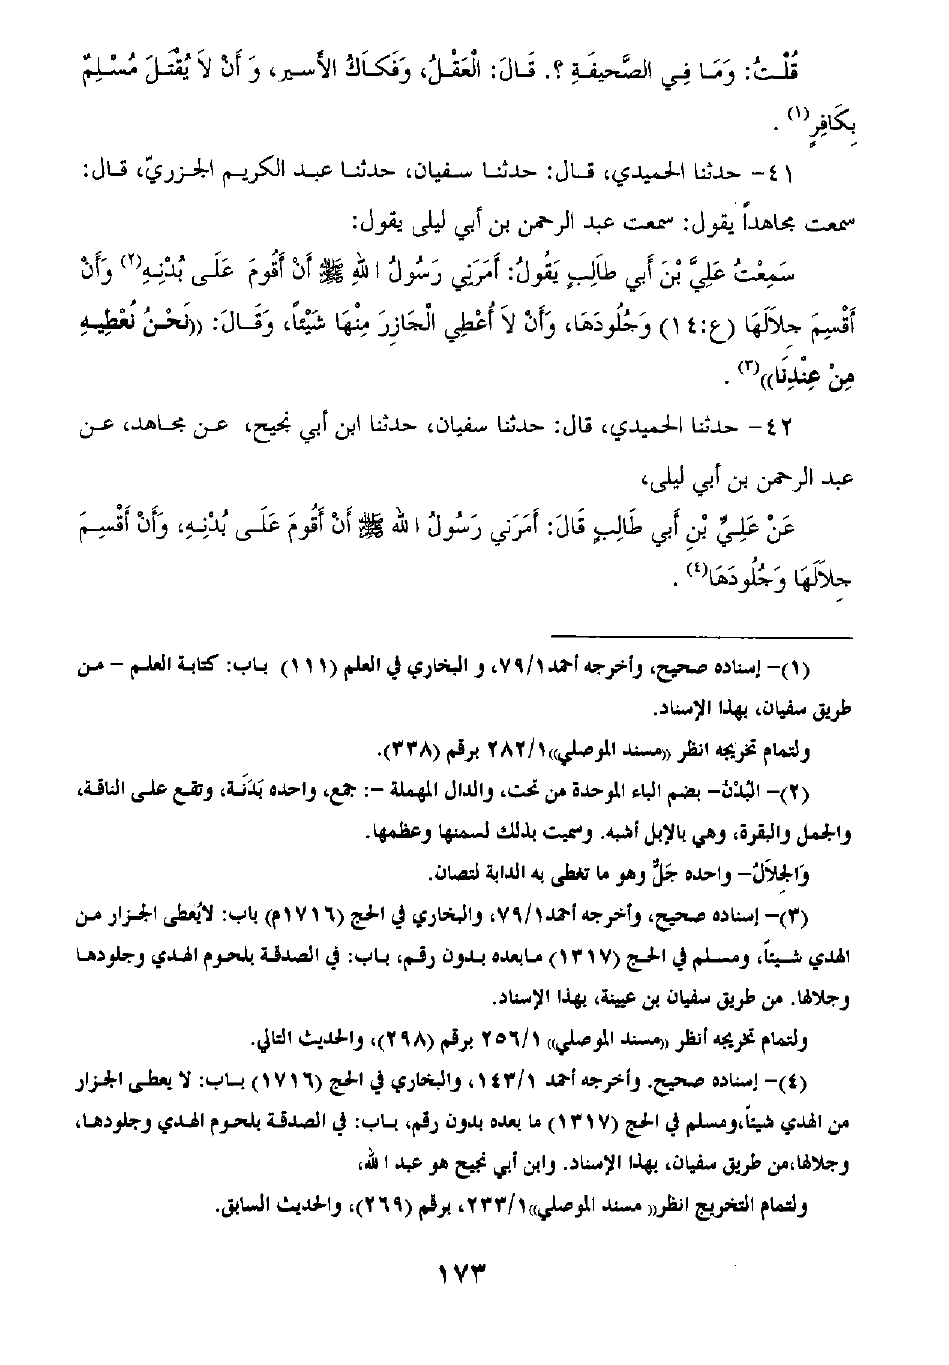 قُلْتُ: وَمَا فِي الصَّحِيفَةِ ؟. قَالَ: الْعَقْلُ، وَفَكَاكُ الأَسيرِ، وَ أَنْ لاَ يُقْتَلَ مُسْلِمٌ
بِكَافِرٍ(١) .
٤١- حدثنا الحميدي، قال: حدثنا سفيان، حدثنا عبد الكريم الجزريّ، قال:
سمعت مجاهداً يقول: سمعت عبد الرحمن بن أبي ليلى يقول:
سَمِعْتُ عَلِيَّ بْنَ أبي طَالِبٍ يَقُولُ: أَمَرَنِي رَسُولُ اللهِ ﷺ أَنْ أَقُومَ عَلَى بُدْنِهِ(٢) وَأَنْ
أَقْسِمَ جِلاَلَهَا (ع:١٤) وَجُلُودَهَا، وَأَنْ لاَ أُعْطِي الْجَازِرَ مِنْهَا شَيْئاً، وَقَالَ: ((نَحْنُ نُعْطِيهِ
مِنْ عِنْدِنَا))(٣) .
٤٢- حدثنا الحميدي، قال: حدثنا سفيان، حدثنا ابن أبي نجيح، عن مجاهد، عن
عبد الرحمن بن أبي ليلى،
عَنْ عَلِيِّ بْنِ أبي طَالِبٍ قَالَ: أَمَرَنِي رَسُولُ الله ﷺ أَنْ أَقُومَ عَلَى بُدْنِهِ، وَأَنْ أَقْسِمَ
جِلاَلَهَا وَجُلُودَهَا(٤) .
(١)- إسناده صحيح، وأخرجه أحمد ٧٩/١، و البخاري في العلم (١١١) باب: كتابة العلم – من
طريق سفيان، بهذا الإسناد.
ولتمام تخريجه انظر ((مسند الموصلي)) ٢٨٢/١ برقم (٣٣٨).
(٢)- البُدْنُ- بضم الباء الموحدة من تحت، والدال المهملة -: جمع، واحده بَدَنَة، وتقع على الناقة،
والجمل والبقرة، وهي بالإبل أشبه. وسميت بذلك لسمنها وعظمها.
وَالجِلاَلُ- واحده جَلٌّ وهو ما تغطى به الدابة لتصان.
(٣)- إسناده صحيح، وأخرجه أحمد ٧٩/١، والبخاري في الحج (١٧١٦م) باب: لايُعطى الجزار من
الهدي شيئاً، ومسلم في الحج (١٣١٧) مابعده بدون رقم، باب: في الصدقة بلحوم الهدي وجلودها
وجلالها. من طريق سفيان بن عيينة، بهذا الإسناد.
ولتمام تخريجه أنظر ((مسند الموصلي)) ٢٥٦/١ برقم (٢٩٨)، والحديث التالي.
(٤)- إسناده صحيح. وأخرجه أحمد ١٤٣/١، والبخاري في الحج (١٧١٦) باب: لا يعطى الجزار
من الهدي شيئاً،ومسلم في الحج (١٣١٧) ما بعده بدون رقم، باب: في الصدقة بلحوم الهدي وجلودها،
وجلالها،من طريق سفيان، بهذا الإسناد. وابن أبي نجيح هو عبد الله،
ولتمام التخريج انظر(( مسند الموصلي))٢٣٣/١، برقم (٢٦٩)، والحديث السابق.
١٧٣